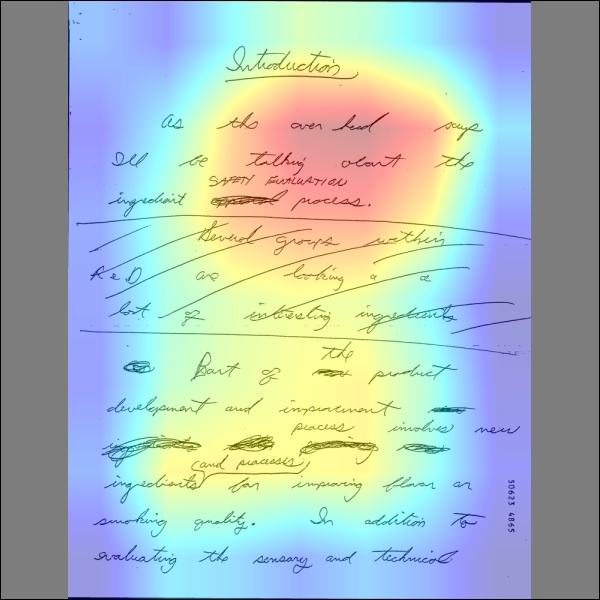 Introduction
As the over head says
I'll be talking about the
SAFETY EVALUATION
ingredient process.
Several groups within
R&D are looking a a
lot of interesting ingredients
the
Part of product
development and improvement
process involves new
(and processes)
ingredients for improving flavor or
smoking quality. In addition to
evaluating the sensory and technical
50623 4865